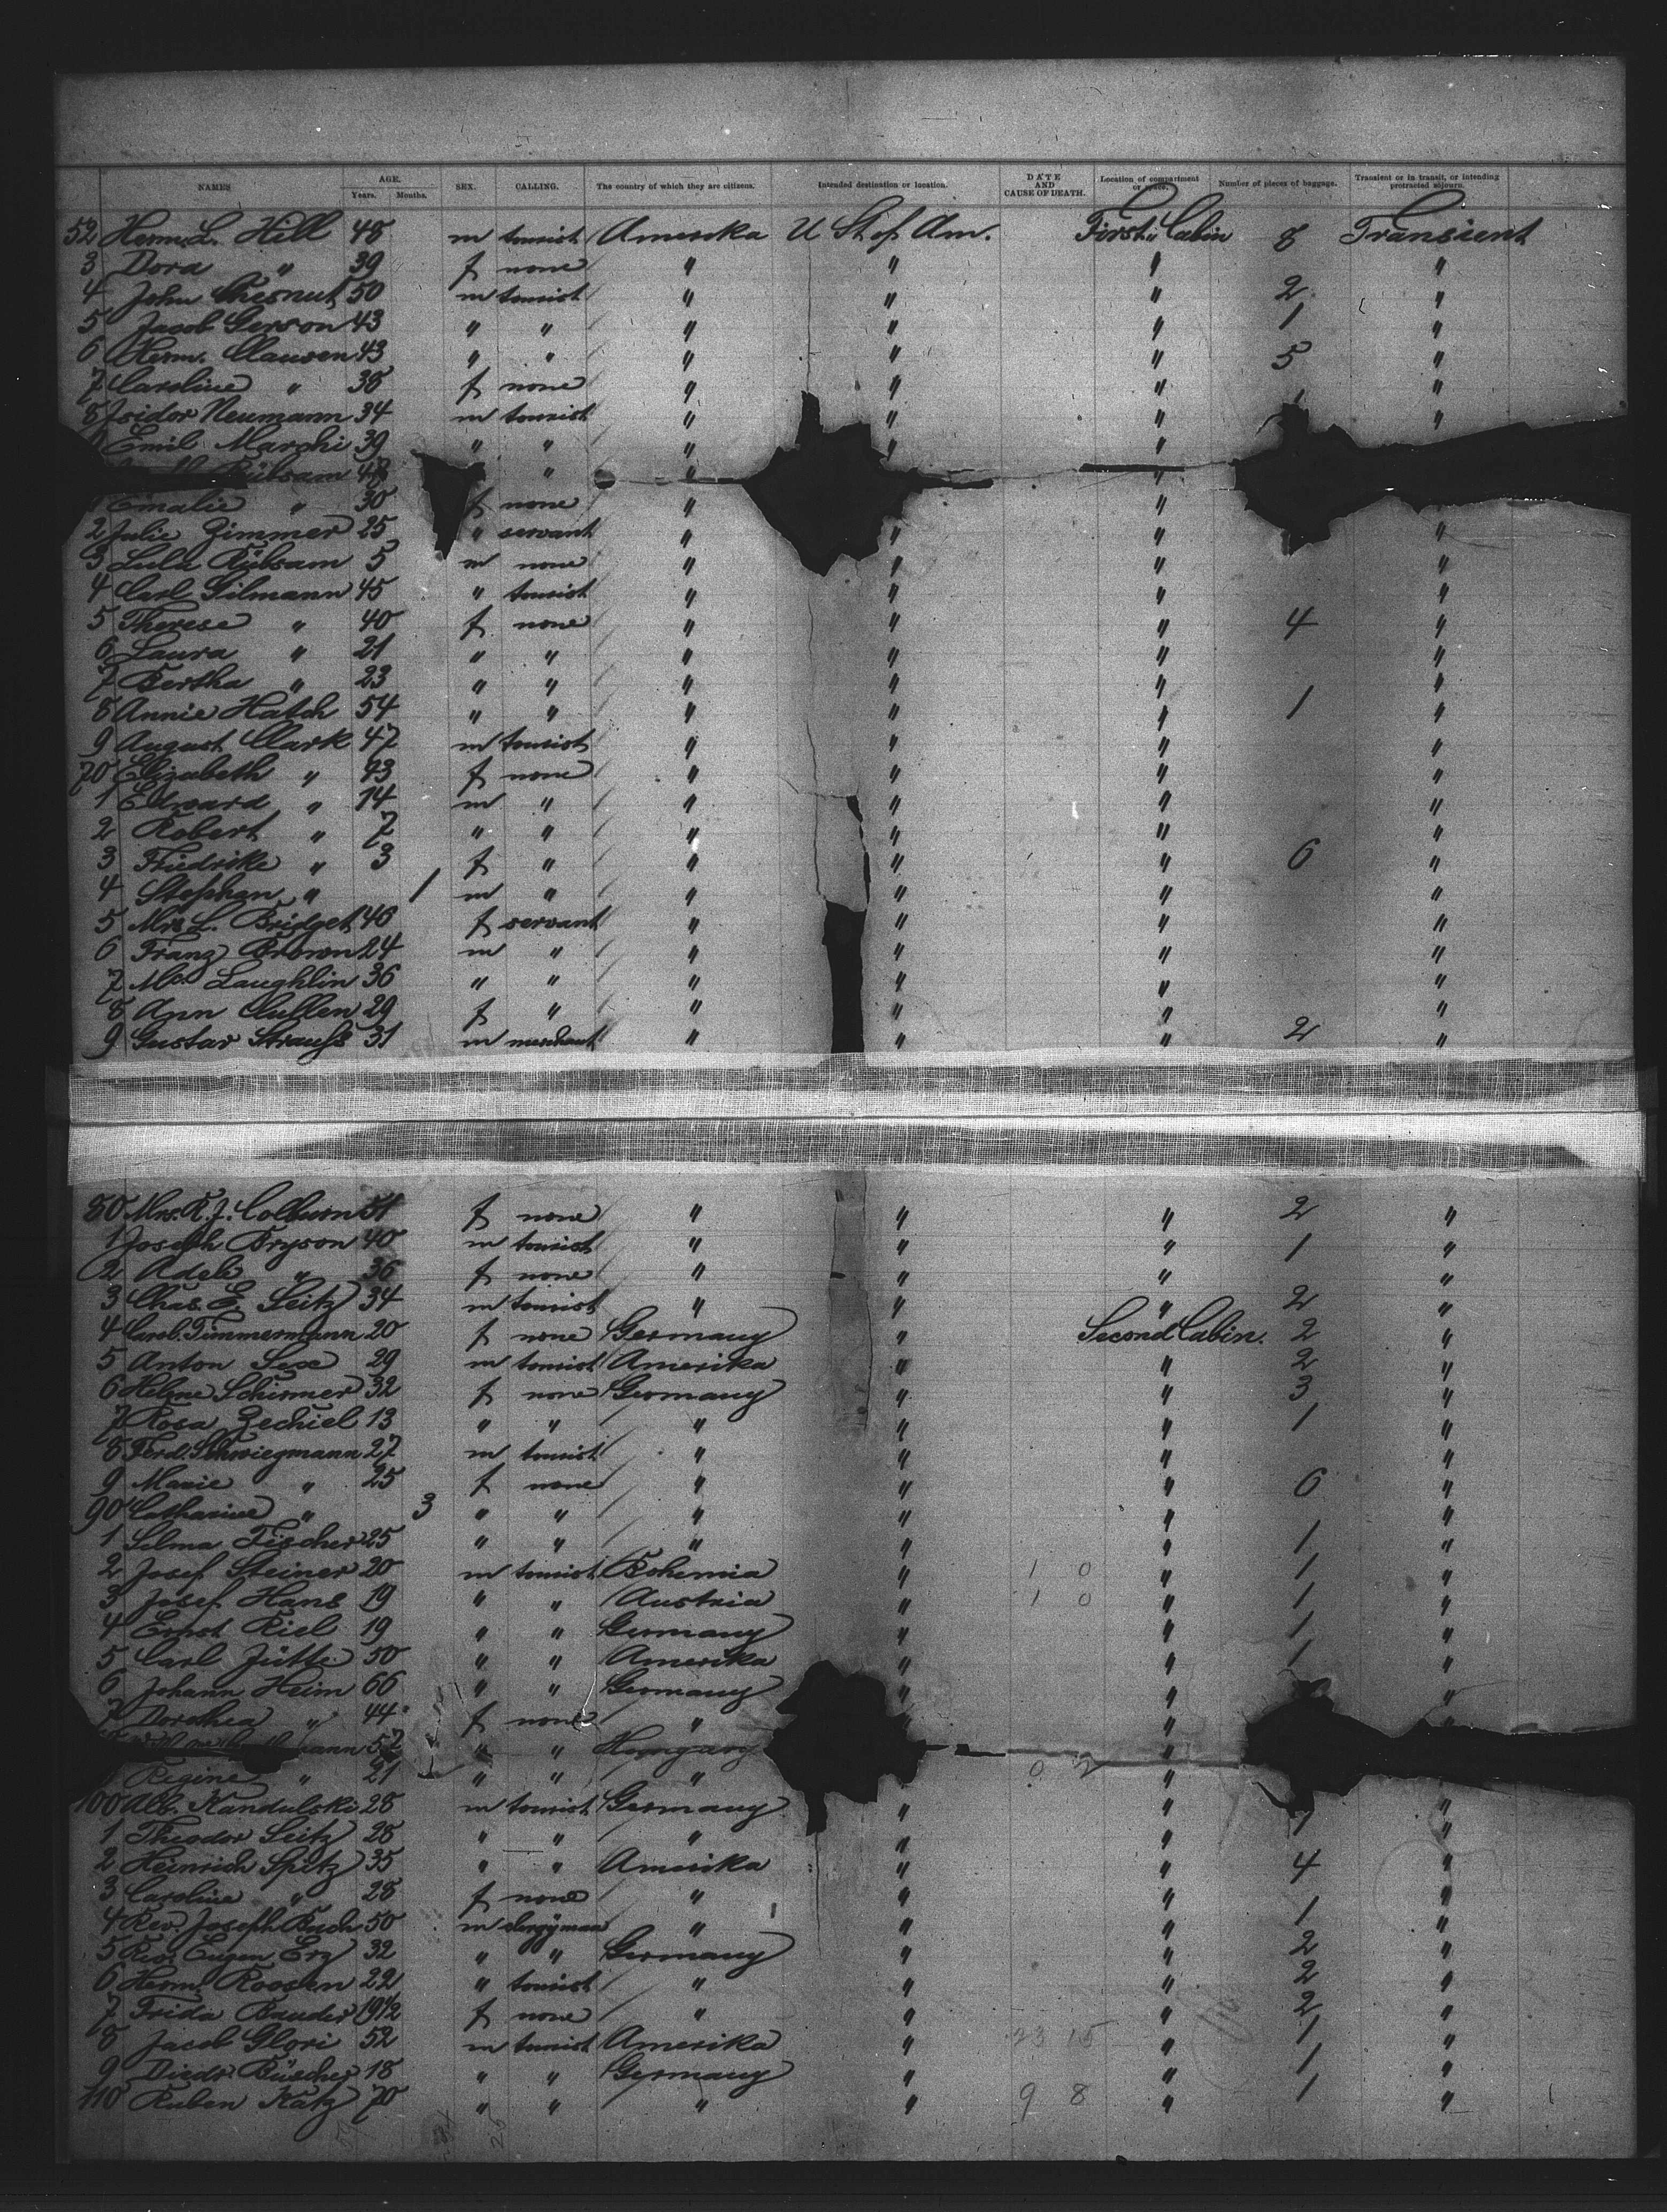 NAMES AGE. Years. Months. SEX. CALLING. The country of which they are citizens. Intended destination or location. DATE AND CAUSE OF DEATH. Location of compartment or space. Number of pieces of baggage. Transient or in transit, or intending protracted sojourn.
52 Herm. L. Hill 48 m tourist Amerika U St of Am. First Cabin 8 Transient
3 Dora " 39 f none " " " "
4 John Chesnut 50 m tourist " " " 2 "
5 Jacob Gerson 43 " " " " " 1 "
6 Herm. Clausen 43 " " " " " 5 "
7 Caroline " 38 f none " " " "
8 Isidor Neumann 34 m tourist " " " "
Emil Marchi 39 " " " " "
Rübsam " " "
Emalie " 30 f none " "
2 Julie Zimmer 25 " servant " " " "
3 Lula Rübsam 5 m none " " " "
4 Carl Gilmann 45 " tourist " " " "
5 Therese " 40 f none " " " 4 "
6 Laura " 21 " " " " " "
7 Bertha " 23 " " " " " "
8 Annie Hatch 54 " " " " " 1 "
9 August Clark 47 m tourist " " " "
70 Elizabeth " 43 f none " " " "
1 Edward " 14 m " " " " "
2 Robert " 7 " " " " " "
3 Friedrike " 3 f " " " " 6 "
4 Stephan " 1 m " " " " "
5 Mrs L. Bridget 46 f servant " " " "
6 Franz Brown 24 m " " " " "
7 Mc Laughlin 36 " " " " " "
8 Ann Cullen 29 f " " " " "
9 Gustav Strauss 31 m merchant " " " 2 "
80 Mrs. R. J. Colburn 51 f none " " " 2 "
1 Joseph Bryson 40 m tourist " " " 1 "
2 Adele " 36 f none " " " "
3 Chas. E. Seitz 34 m tourist " " " 2 "
4 Carol. Timmermann 20 f none Germany " Second Cabin. 2 "
5 Anton Sexe 29 m tourist Amerika " " 2 "
6 Helene Schirmer 32 f none Germany " " 3 "
7 Rosa Zechiel 13 " " " " " 1 "
8 Ferd. Schwiegmann 27 m tourist " " " "
9 Marie " 25 f none " " " 6 "
90 Catharine " 3 " " " " " "
1 Selma Fischer 25 " " " " " 1 "
2 Josef Steiner 20 m tourist Bohemia " 1 0 " 1 "
3 Josef Hans 19 " " Austria " 1 0 " 1 "
4 Ernst Riel 19 " " Germany " " 1 "
5 Carl Jütte 50 " " Amerika " " 1 "
6 Johann Heim 66 " " Germany " " "
7 Dorothea " 44 f none " " " "
mann 52 " " Hongary "
Regine " 21 " " " 0 2 "
100 Alb. Kandulski 28 m tourist Germany " " "
1 Theodor Seitz 28 " " " " " 1 "
2 Heinrich Spitz 35 " " Amerika " " 4 "
3 Caroline " 28 f none " " " "
4 Rev. Joseph Buch 50 m clergÿman " " " 1 "
5 Rev. Eugen Erz 32 " " Germany " " 2 "
6 Herm. Roosen 22 " tourist " " " 2 "
7 Frida Bauder 19 1/2 f none " " " 2 "
8 Jacob Glori 52 m tourist Amerika " 23 15 " 1 "
9 Diedr. Büscher 18 " " Germany " " 1 "
110 Ruben Katz 70 " " " " 9 8 " 1 "